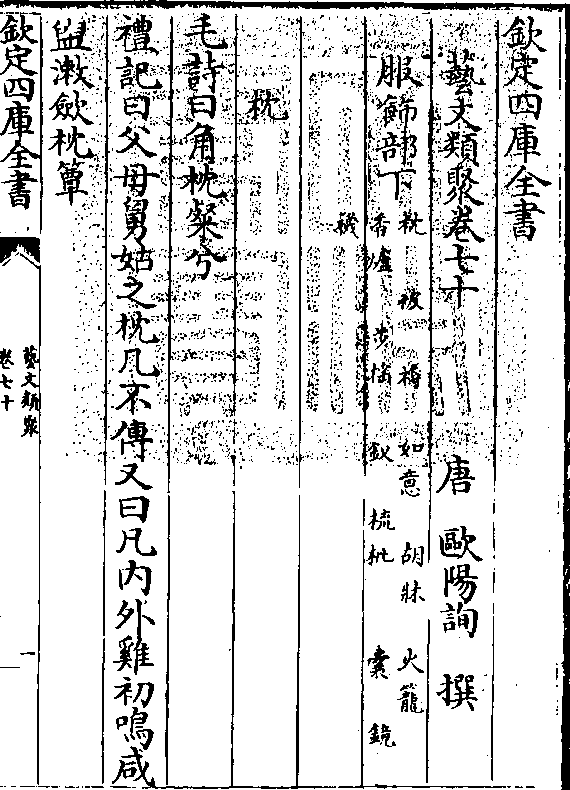 欽定四庫全書
藝文類聚卷七十
唐 歐陽詢 撰
服飾部下
枕 被 褥 如意 胡牀 火籠
香爐 步搖 釵 梳枇 囊 鏡
襪
枕
毛詩曰角枕粲兮
禮記曰父母舅姑之枕几不傳又曰凡內外雞初鳴咸
盥漱斂枕簟
欽定四庫全書
藝文類聚
卷七十
一